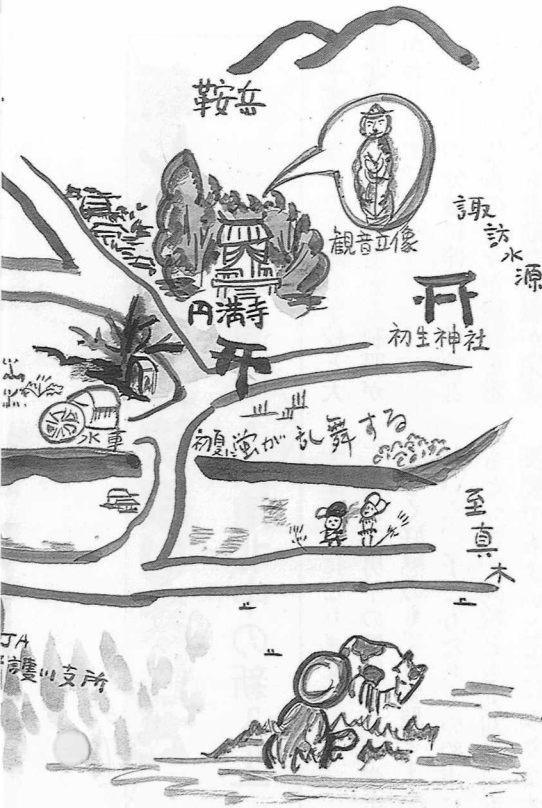 鞍岳
観音立像
諏訪水源
円満寺
初生神社
水車
初夏蛍が乱舞する
至真木
JA
護川支所